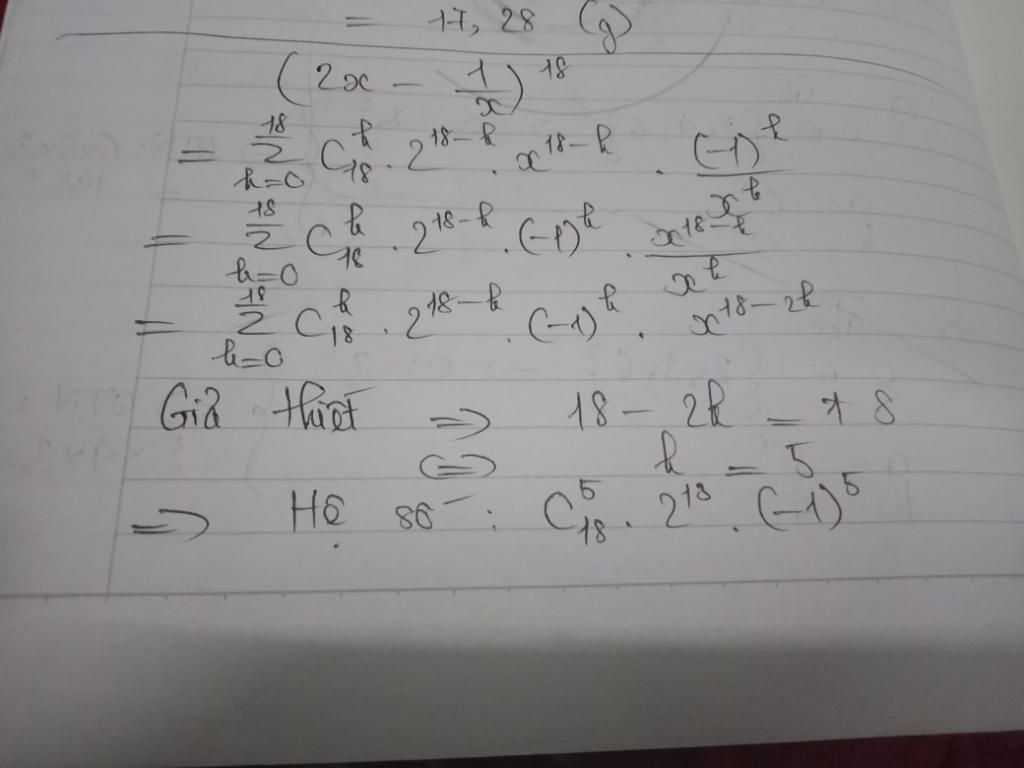 = 17,28 (g)
(2x - 1/x)^18
= Σ_{k=0}^{18} C_18^k . 2^{18-k} . x^{18-k} . (-1)^k / x^k
= Σ_{k=0}^{18} C_18^k . 2^{18-k} . (-1)^k . x^{18-k} / x^k
= Σ_{k=0}^{18} C_18^k . 2^{18-k} . (-1)^k . x^{18-2k}
Giả thiết => 18 - 2k = 8
<=> k = 5
=> Hệ số : C_18^5 . 2^18 . (-1)^5